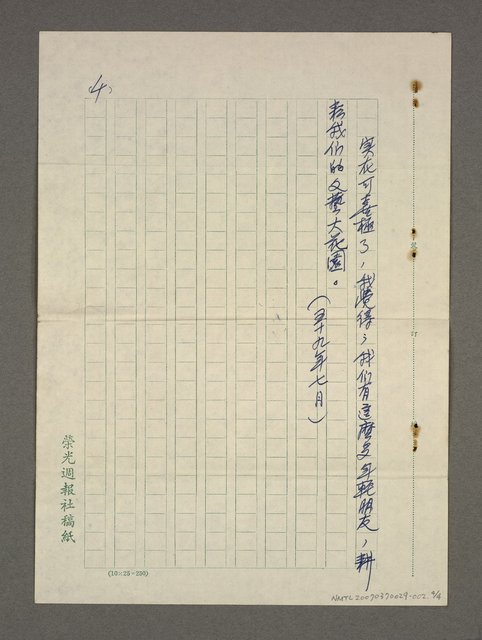 実在可喜極了，我覺得，我们有這麼多年輕朋友，耕
耘我们的文藝大花園。
（五十九年七月）
(4)
榮光週報社稿紙
(10×25=250)
訂
NMTL 20070370029-002 4/4